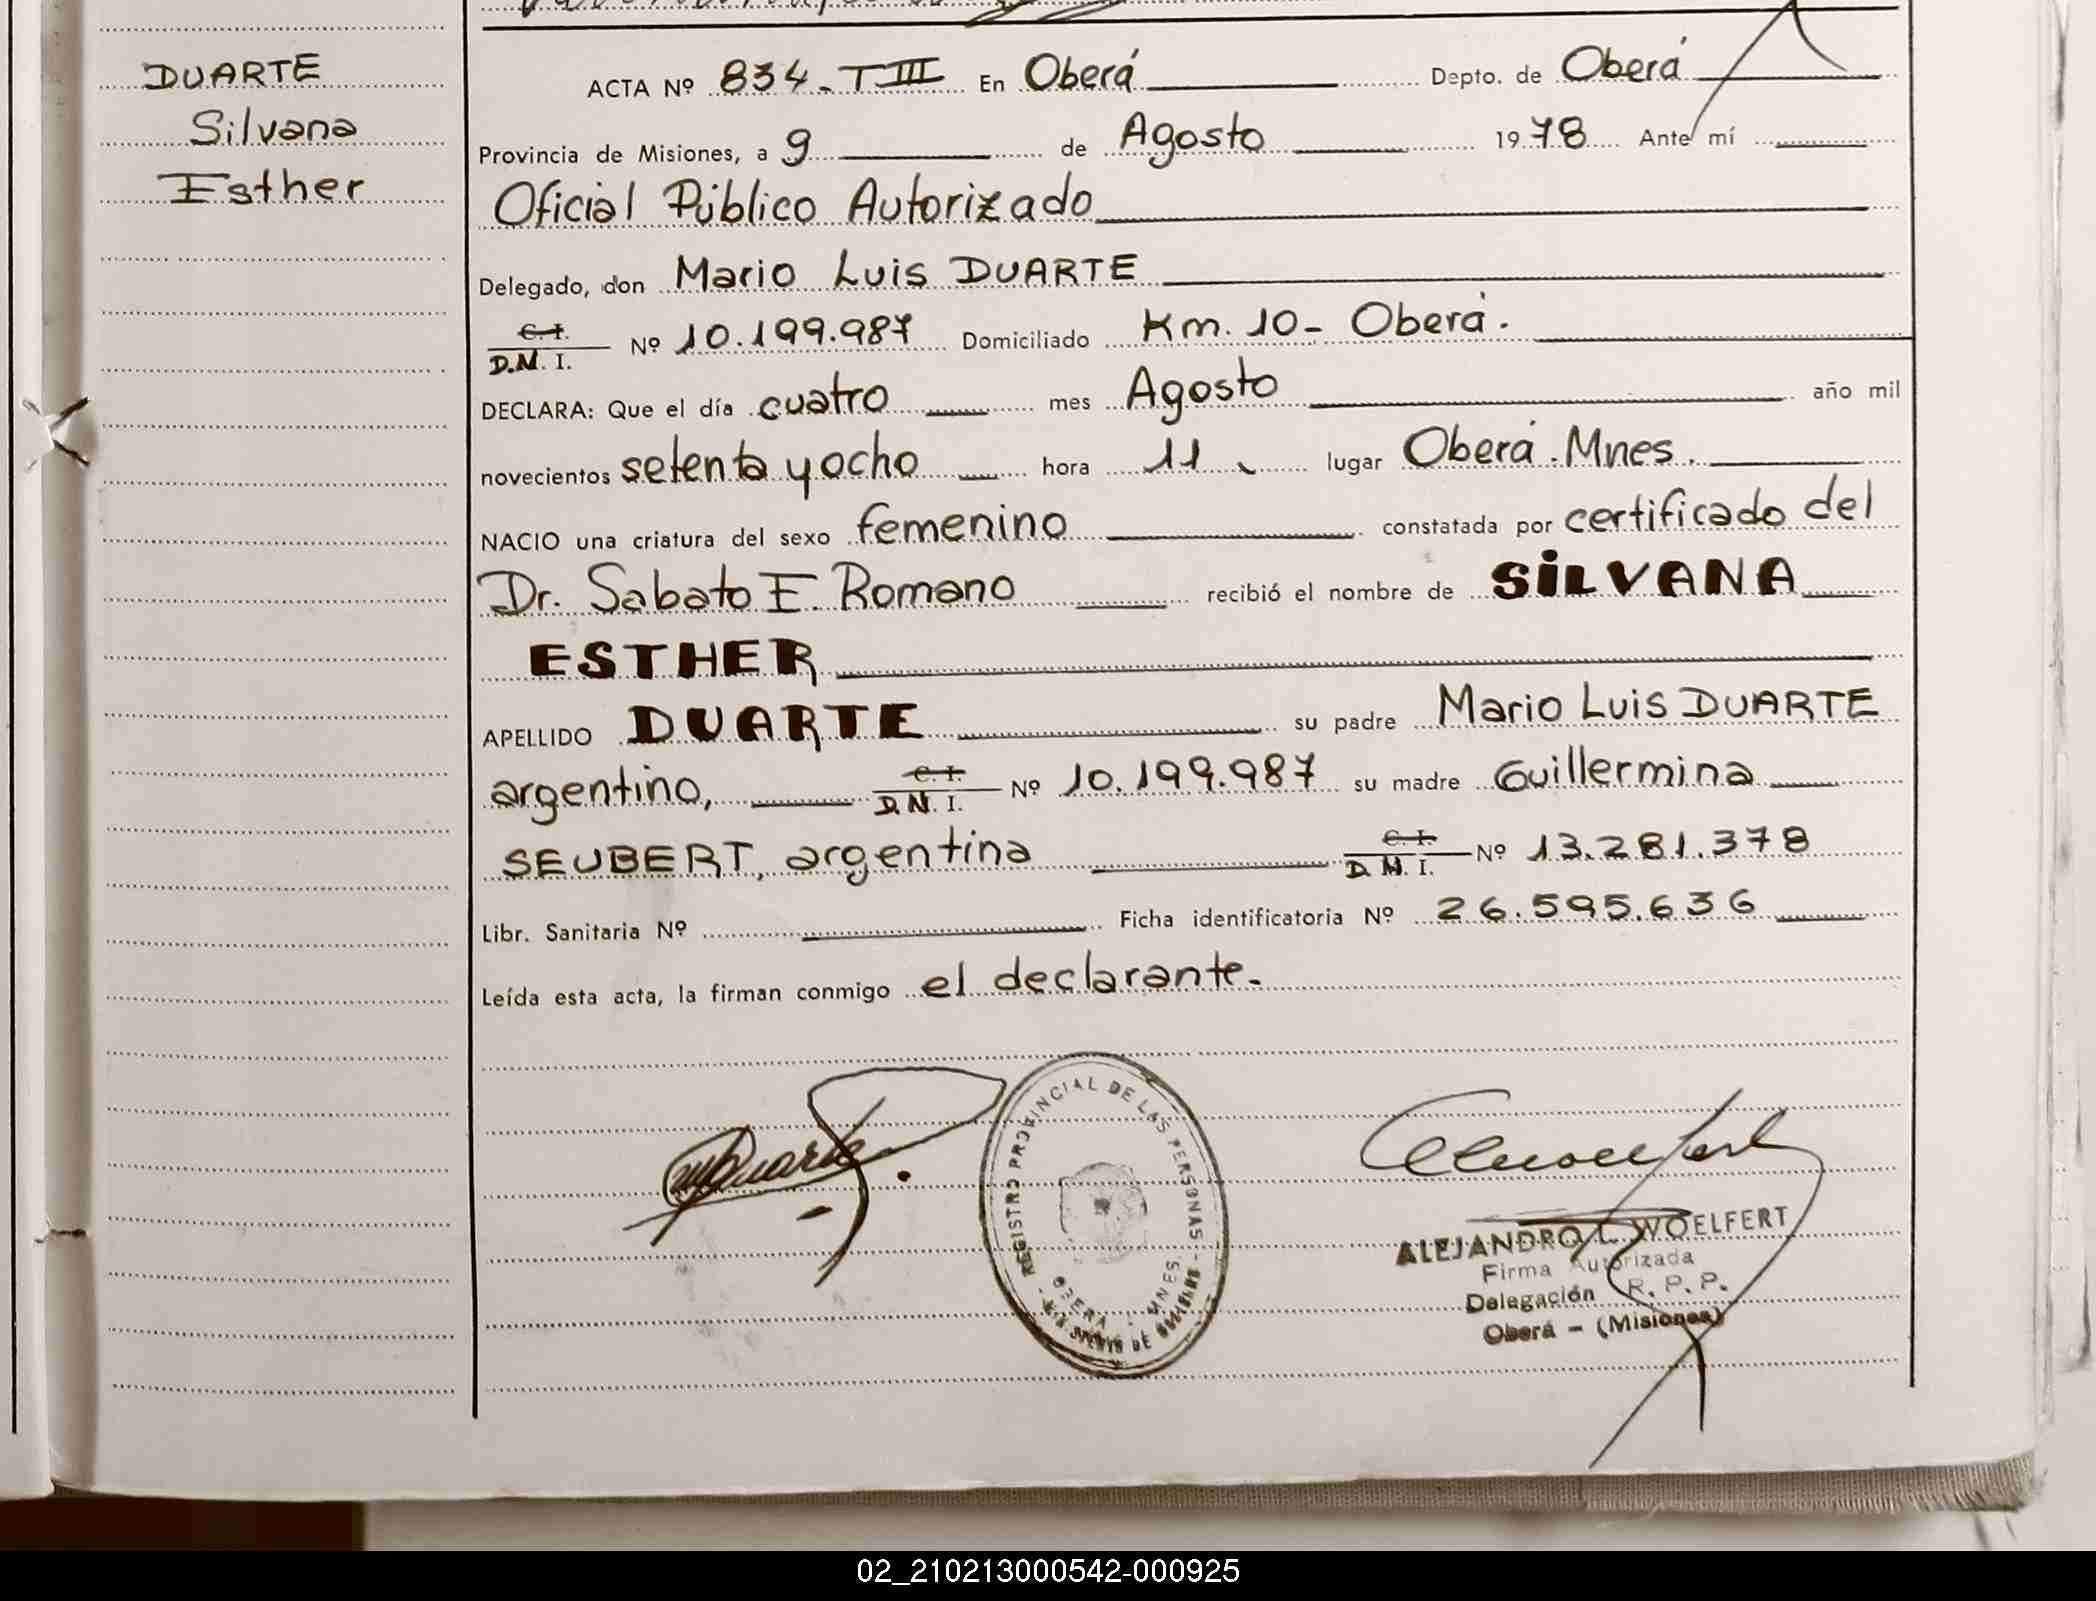 DUARTE
Silvana
Esther
ACTA Nº 834-TIII En Oberá Depto. de Oberá
Provincia de Misiones, a 9 de Agosto 1978 Ante mí
Oficial Público Autorizado
Delegado, don Mario Luis DUARTE
C.I.
D.N.I. Nº 10.199.987 Domiciliado Km. 10- Oberá.
DECLARA: Que el día cuatro mes Agosto año mil
novecientos setenta y ocho hora 11 lugar Oberá. Mnes.
NACIO una criatura del sexo femenino constatada por certificado del
Dr. Sabato E. Romano recibió el nombre de SILVANA
ESTHER
APELLIDO DUARTE su padre Mario Luis DUARTE
argentino, C.I. D.N.I. Nº 10.199.987 su madre Guillermina
SEUBERT, argentina C.I. D.N.I. Nº 13.281.378
Libr. Sanitaria Nº Ficha identificatoria Nº 26.595.636
Leída esta acta, la firman conmigo el declarante.-
REGISTRO PROVINCIAL DE LAS PERSONAS
OBERA - MNES
ALEJANDRO L. WOELFERT
Firma Autorizada
Delegación R. P. P.
Oberá - (Misiones)
02_210213000542-000925